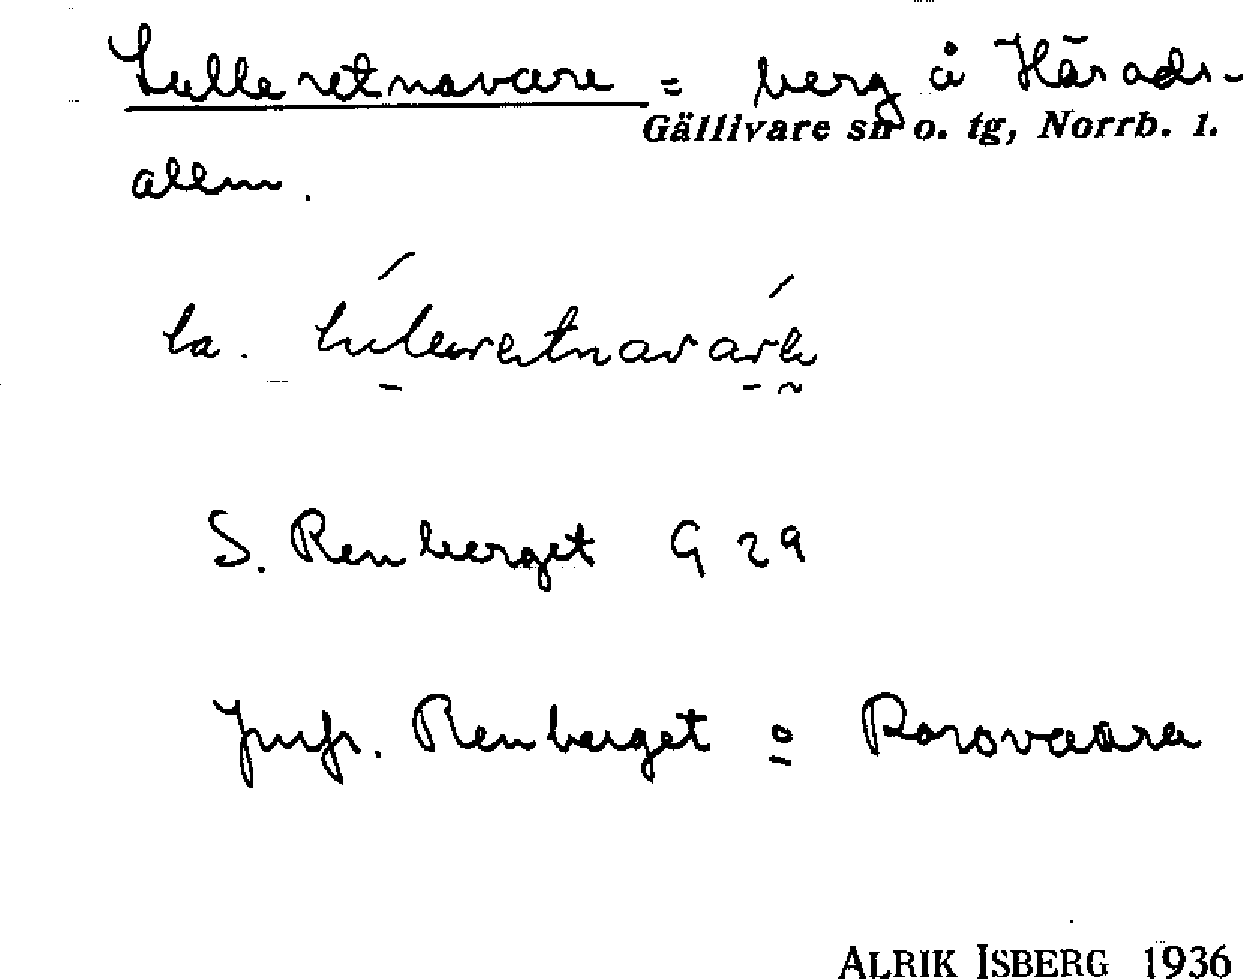 Lulleretnavare = berg å Härads-
Gällivare sn o. tg, Norrb. l.
allm.
la.
S. Renberget G 29
Jmfr. Renberget o Porovaara
ALRIK ISBERG 1936